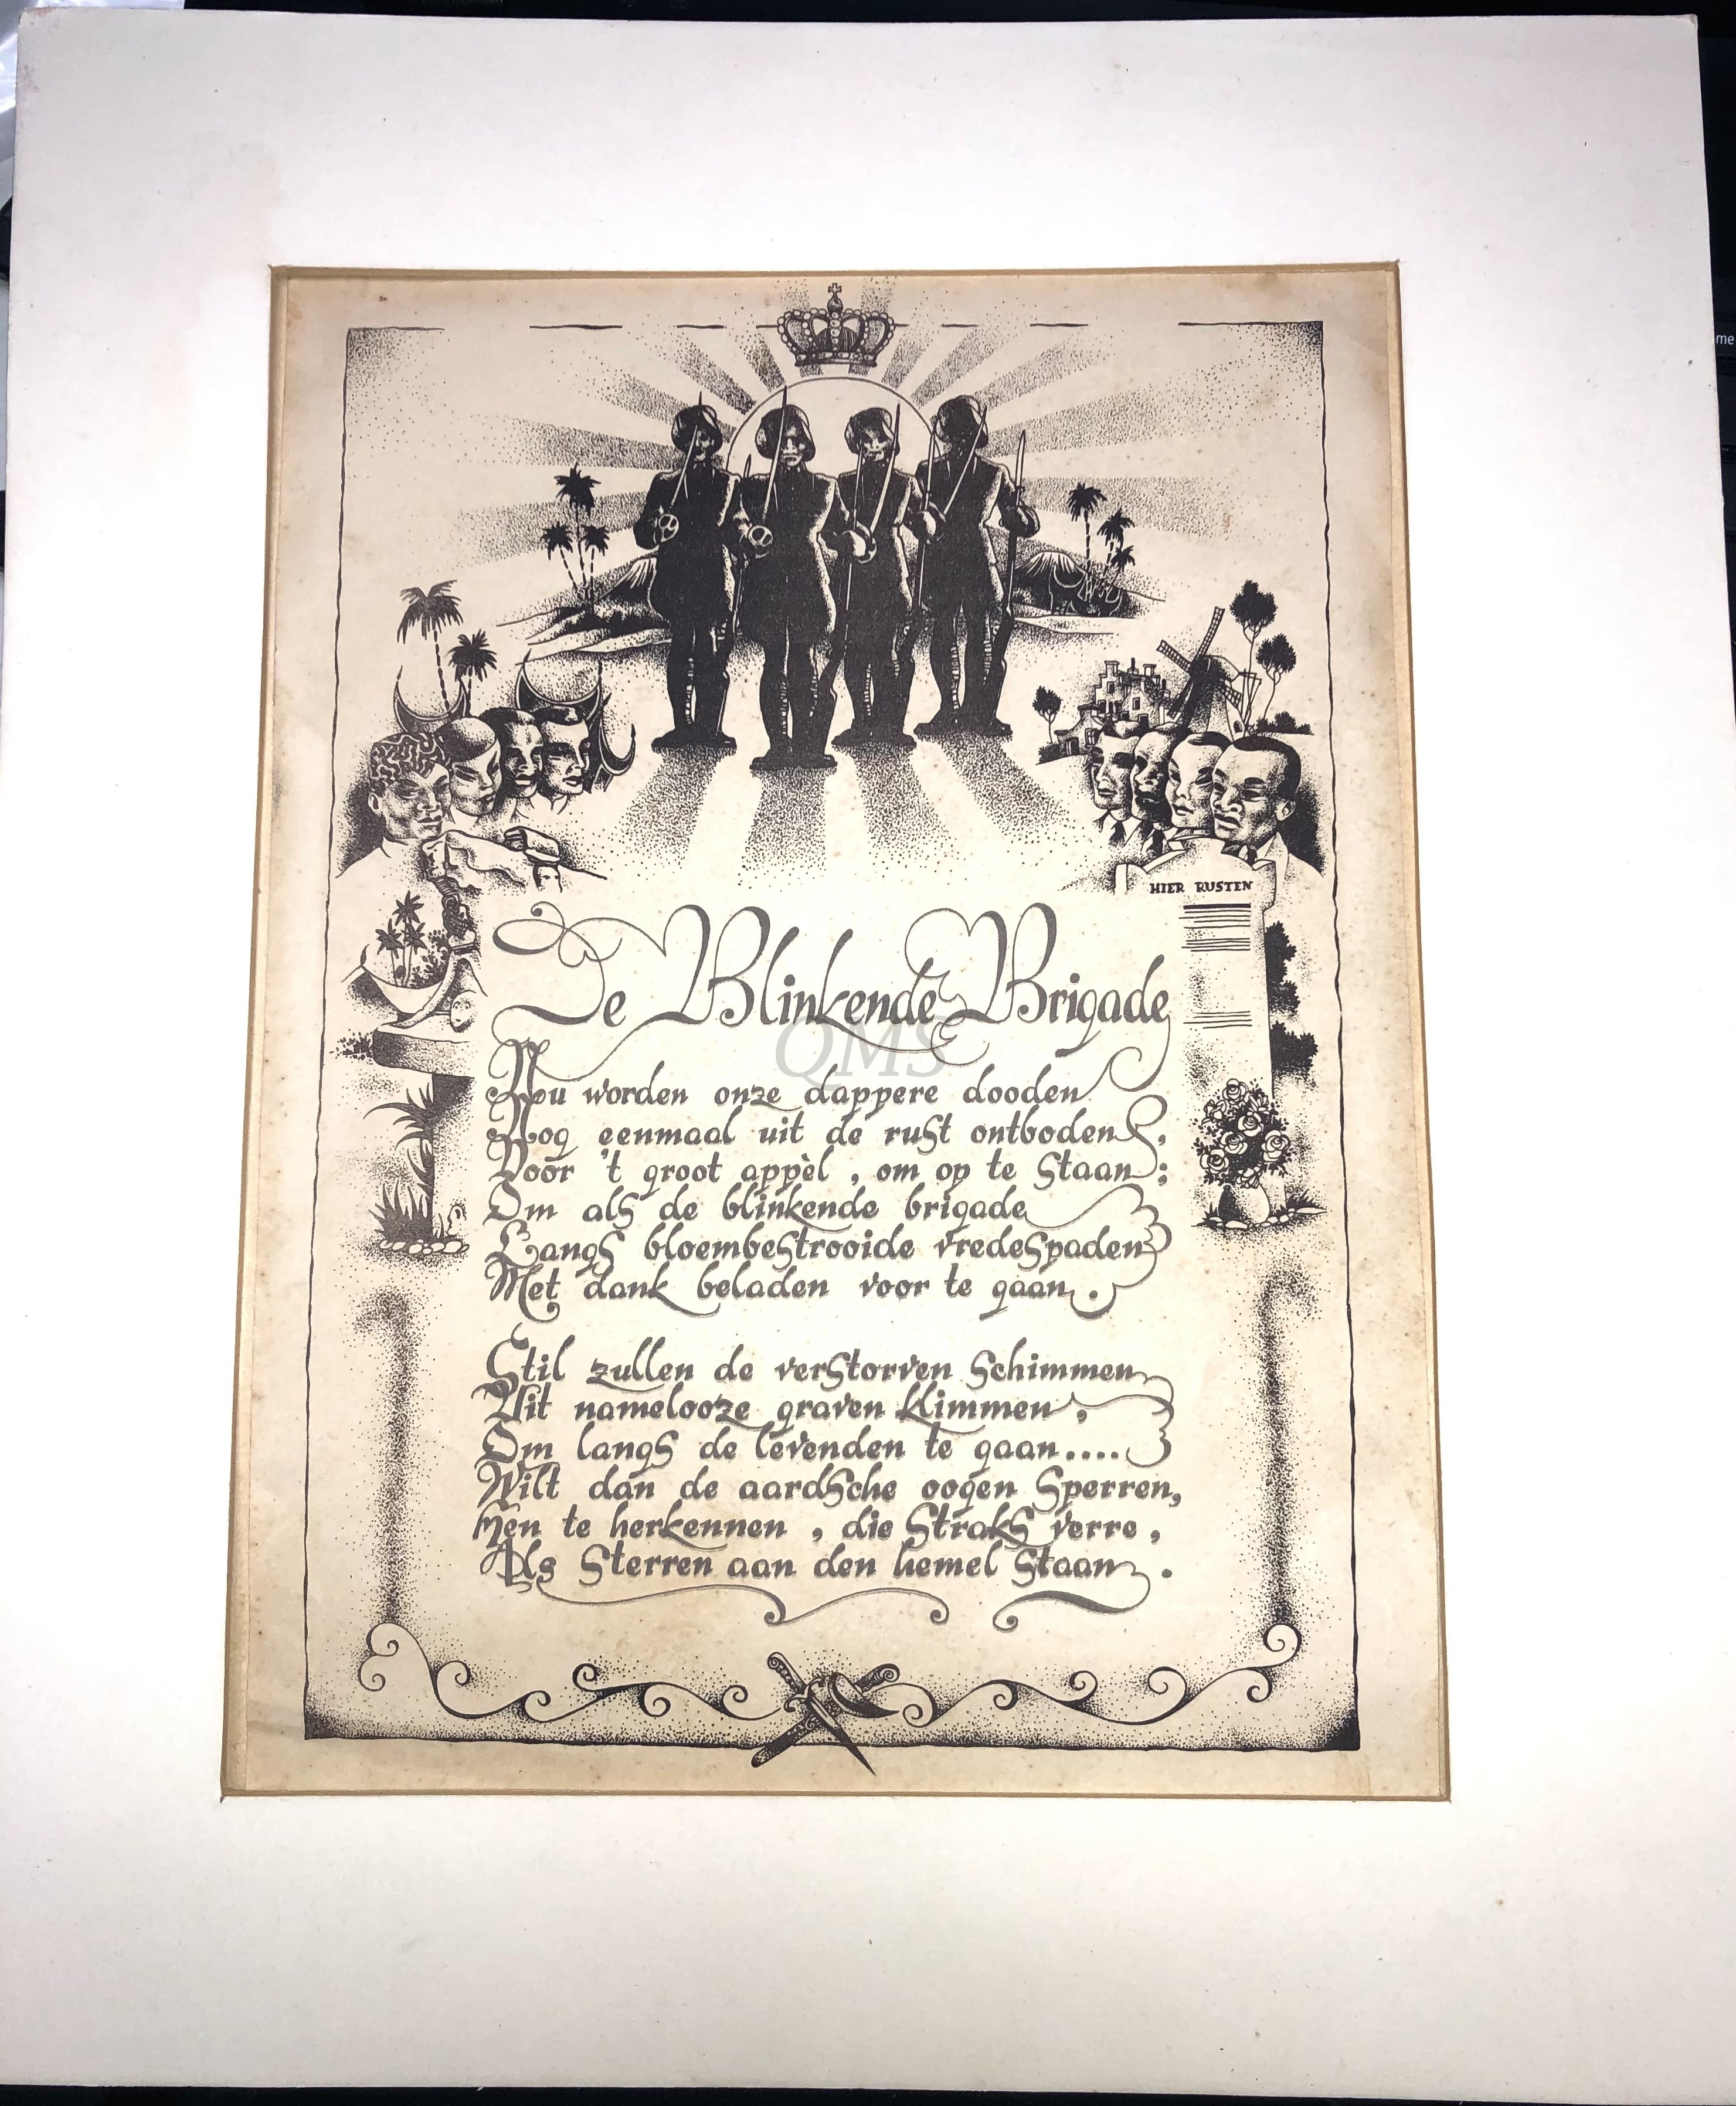 HIER RUSTEN
De Blinkende Brigade
QMS
Nou worden onze dappere dooden
Nog eenmaal uit de rust ontboden,
Door 't groot appèl, om op te staan;
Om als de blinkende brigade
Langs bloembestrooide vredespaden
Met dank beladen voor te gaan.
Stil zullen de verstorven schimmen
Uit namelooze graven klimmen,
Om langs de levenden te gaan....
Wilt dan de aardsche oogen sperren,
Hen te herkennen, die straks verre,
Als sterren aan den hemel staan.
me